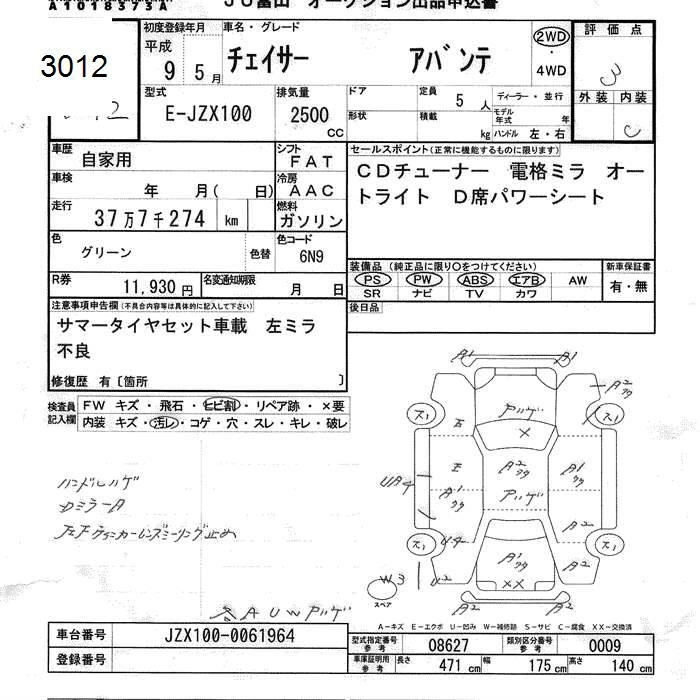 A1018575A
JU富山 オークション出品申込書
3012
初度登録年月
平成 9 5月
車名・グレード
チェイサー アバンテ
2WD
・
4WD
評価点
3
外装 内装
C
型式
E-JZX100
排気量
2500
CC
ドア
形状
定員 5 人
積載 kg
ディーラー・並行
モデル年式 年
ハンドル 左・右
車歴
自家用
シフト
FAT
車検
年 月( 日)
冷房
AAC
走行
37万7千274 km
燃料
ガソリン
色
グリーン
色替
色コード
6N9
R券
11,930円
名変通知期限
月 日
セールスポイント(正常に機能するものに限ります)
CDチューナー 電格ミラ オー
トライト D席パワーシート
装備品(純正品に限り○をつけてください)
PS PW ABS エアB AW
SR ナビ TV カワ
新車保証書
有・無
後日品
注意事項申告欄(不具合内容等は具体的に記入して下さい)
サマータイヤセット車載 左ミラ
不良
修復歴 有〔箇所 〕
検査員
記入欄
FW キズ・飛石・ヒビ割・リペア跡・×要
内装 キズ・汚レ・コゲ・穴・スレ・キレ・破レ
ハンドルハゲ
DミラーA
左Fウィンカーレンズミーリング止め
A1 A1
A2
ス1 ス1
アハゲ
E
×
E
A2
A1
アハゲ
UA4
A1
A2
ス1 ス1
U4
A1
A2
××
U2
W3
スペア
各AUWアハゲ
A−キズ E−エクボ U−凹み W−補修跡 S−サビ C−腐食 XX−交換済
車台番号
JZX100-0061964
登録番号
型式指定番号
参考
08627
類別区分番号
参考
0009
車庫証明用
参考
長さ 471 cm 幅 175 cm 高さ 140 cm